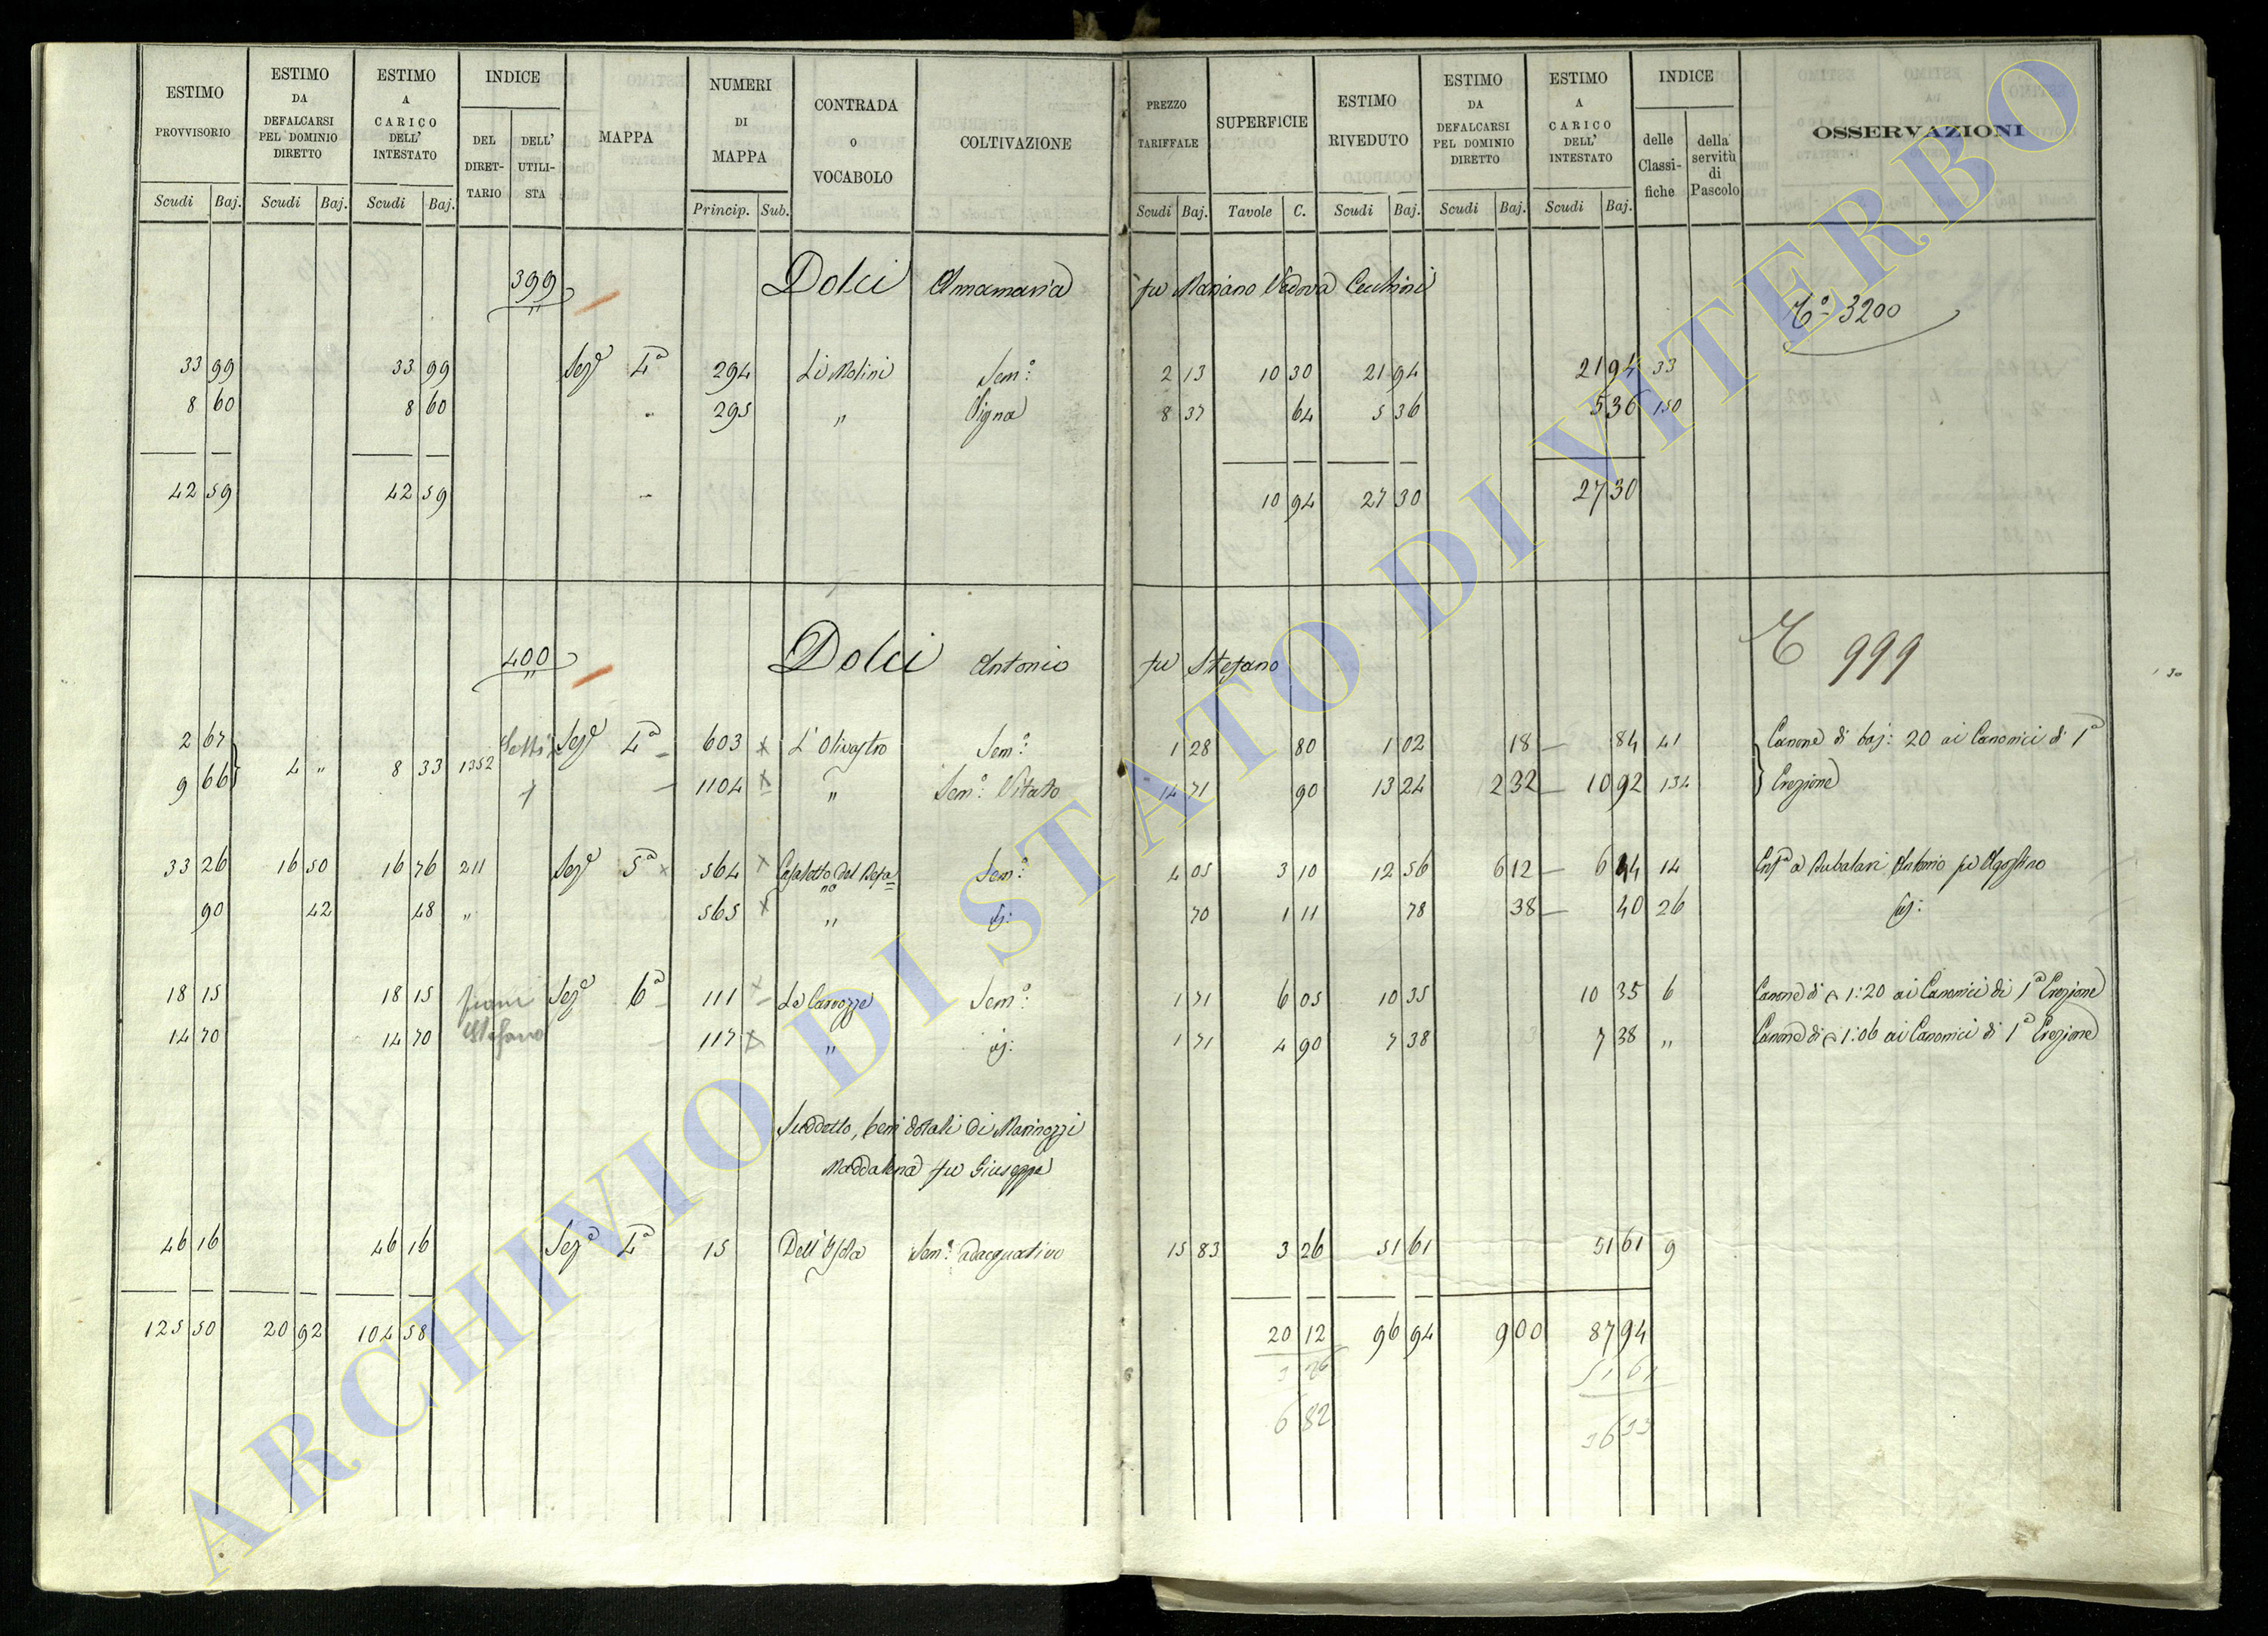 ESTIMO PROVVISORIO Scudi Baj.
ESTIMO DA DEFALCARSI PEL DOMINIO DIRETTO Scudi Baj.
ESTIMO A CARICO DELL' INTESTATO Scudi Baj.
INDICE DEL DIRET- TARIO DELL' UTILI- STA
MAPPA
NUMERI DI MAPPA Princip. Sub.
CONTRADA o VOCABOLO
COLTIVAZIONE
PREZZO TARIFFALE Scudi Baj.
SUPERFICIE Tavole C.
ESTIMO RIVEDUTO Scudi Baj.
ESTIMO DA DEFALCARSI PEL DOMINIO DIRETTO Scudi Baj.
ESTIMO A CARICO DELL' INTESTATO Scudi Baj.
INDICE delle Classi- fiche della servitù di Pascolo
OSSERVAZIONI
399 Dolci Annamaria fu Mariano Vedova Cecchini
3200
33 99 33 99 Seze 4a 294 Li Molini Sem: 2 13 10 30 21 94 21 94 33
8 60 8 60 " 295 " Vigna 8 37 64 5 36 5 36 150
42 59 42 59 10 94 27 30 27 30
400 Dolci Antonio fu Stefano
999
2 67 4 " 8 33 1352 Seze 4a 603 x L'Olivastro Sem: 1 28 80 1 02 18 84 41 Canone di baj: 20 ai Canonici di 1a
9 66 1104 x " Sem: Vitato 14 71 90 13 24 2 32 10 92 134 Erezione
33 26 16 50 16 76 211 Seze 5a x 564 x Casaletto del Befa= no Sem: 4 05 3 10 12 56 6 12 6 44 14 Antonio fu Agostino
90 42 48 " 565 x " id: 70 1 11 78 38 40 26 id:
18 15 18 15 Seze 6a 111 x Le Carrozze Sem: 1 71 6 05 10 35 10 35 6 Canone di 1:20 ai Canonici di 1a Erezione
14 70 14 70 Stefano 117 x " id: 1 71 4 90 7 38 7 38 " Canone di 1:06 ai Canonici di 1a Erezione
Suddetto, beni dotali di Marinozzi
Maddalena fu Giuseppe
46 16 46 16 Seze 4a 15 Dell'Isola Sem: adacquativo 15 83 3 26 51 61 51 61 9
125 50 20 92 104 58 20 12 96 94 9 00 87 94
3 26 51 61
6 82 36 33
ARCHIVIO DI STATO DI VITERBO